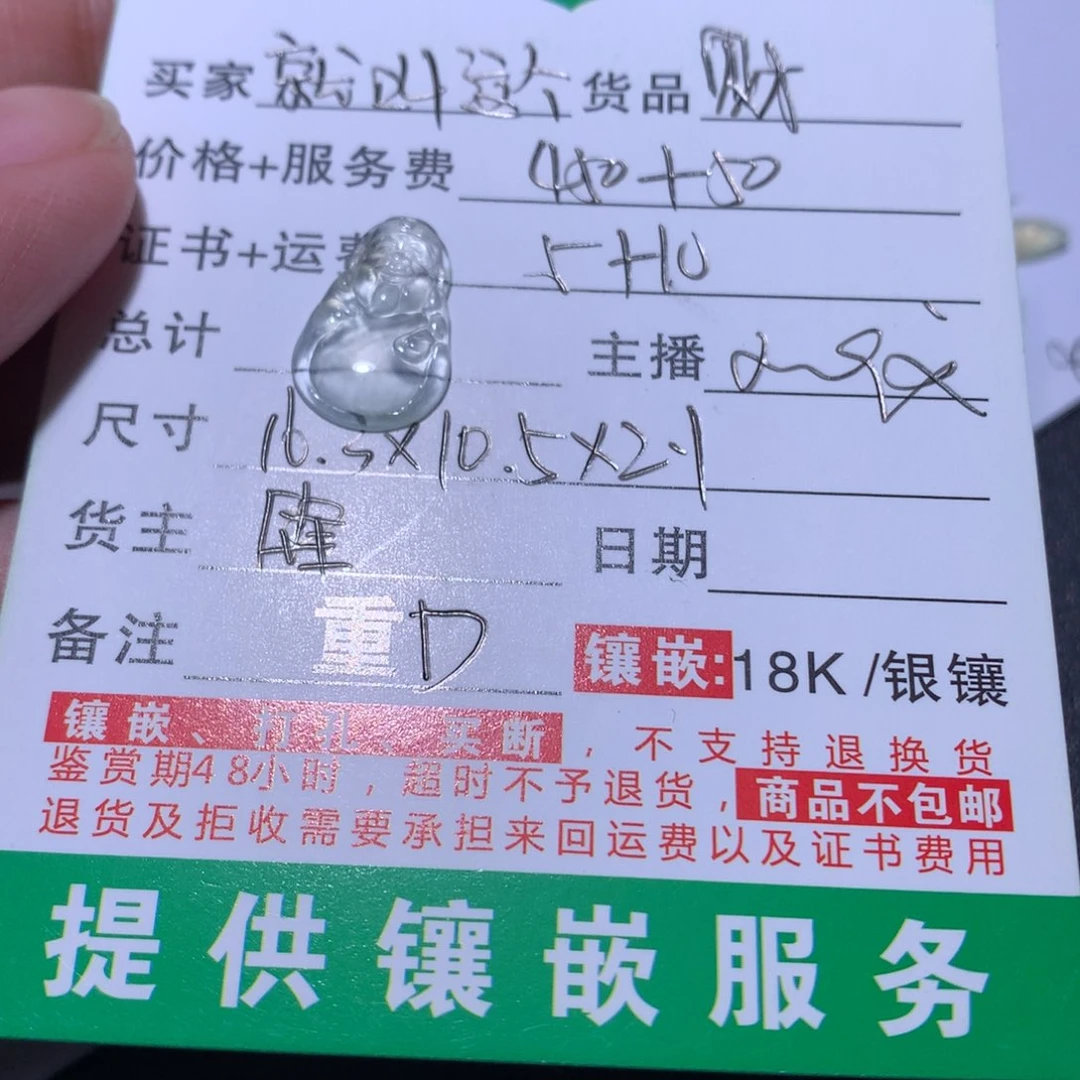 买家 就叫这个 货品 财
价格+服务费 450+50
证书+运费 5+10
总计 主播
尺寸 16.3×10.5×2.1
货主 日期
备注 重D 镶嵌:18K /银镶
镶嵌、打孔、买断，不支持退换货
鉴赏期48小时，超时不予退货，商品不包邮
退货及拒收需要承担来回运费以及证书费用
提供镶嵌服务